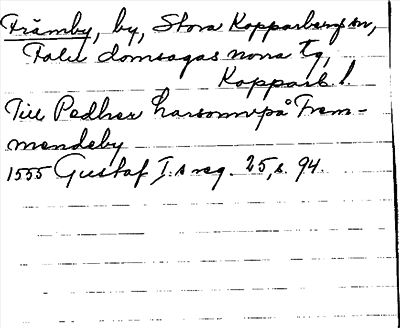 Främby, by, Stora Kopparbergs sn,
Falu domsagas norra tg,
Kopparb. l.
Till Pedher Larsonn på Frem-
mendeby
1555 Gustaf I:s reg. 25, s. 94.